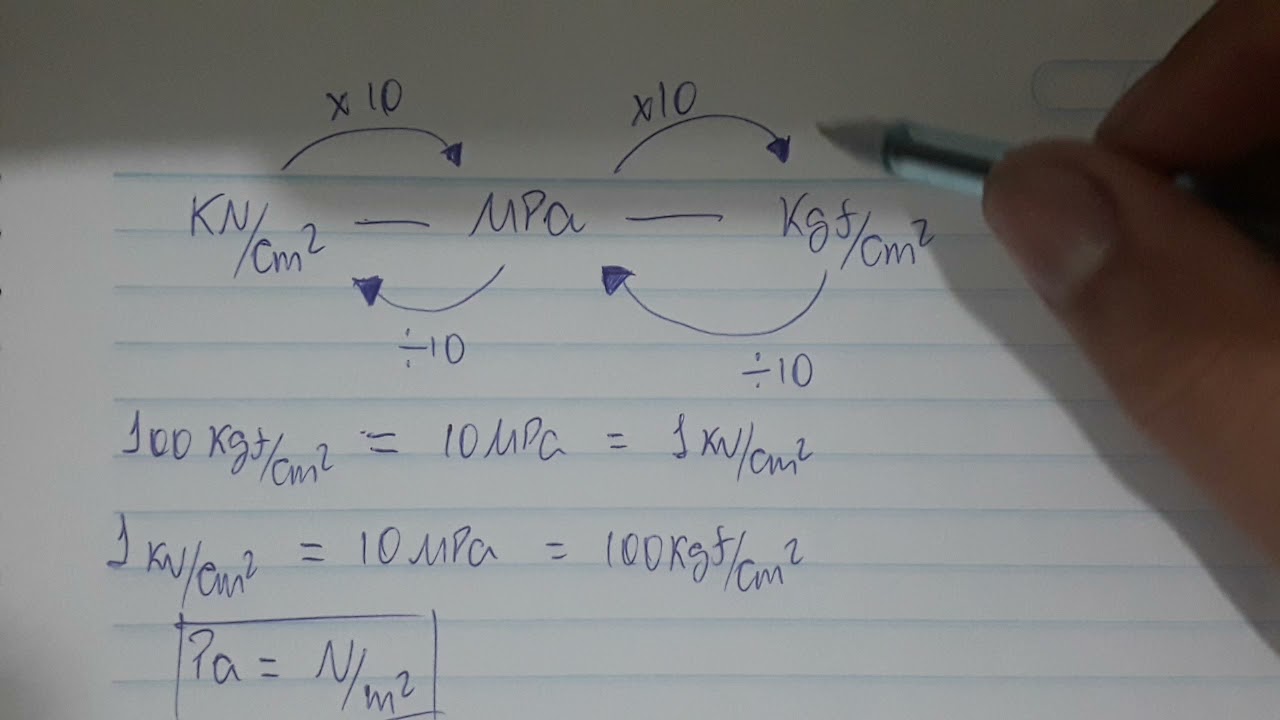 x10 x10
KN/cm² — MPa — Kgf/cm²
÷10 ÷10
100 Kgf/cm² = 10 MPa = 1 KN/cm²
1 KN/cm² = 10 MPa = 100 Kgf/cm²
Pa = N/m²